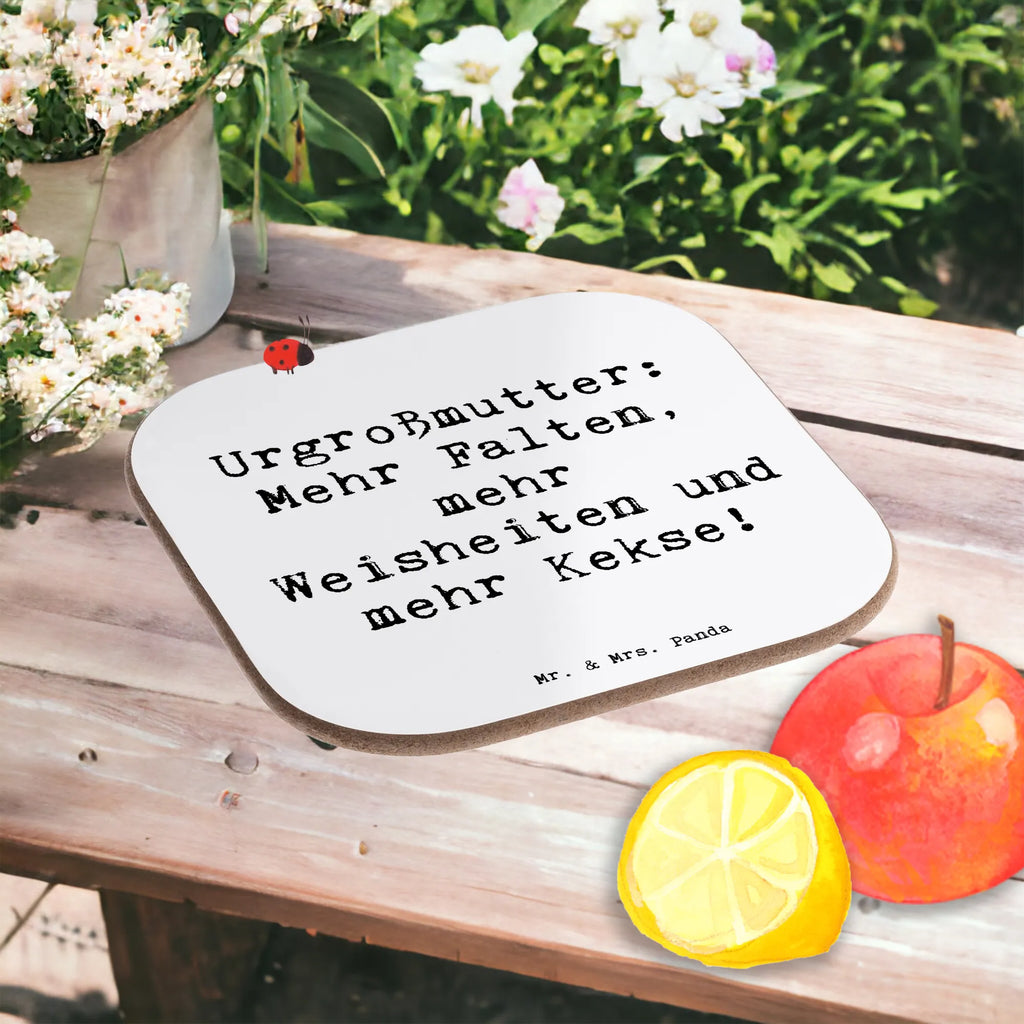 Urgroßmutter:
Mehr Falten,
mehr
Weisheiten und
mehr Kekse!
Mr. & Mrs. Panda